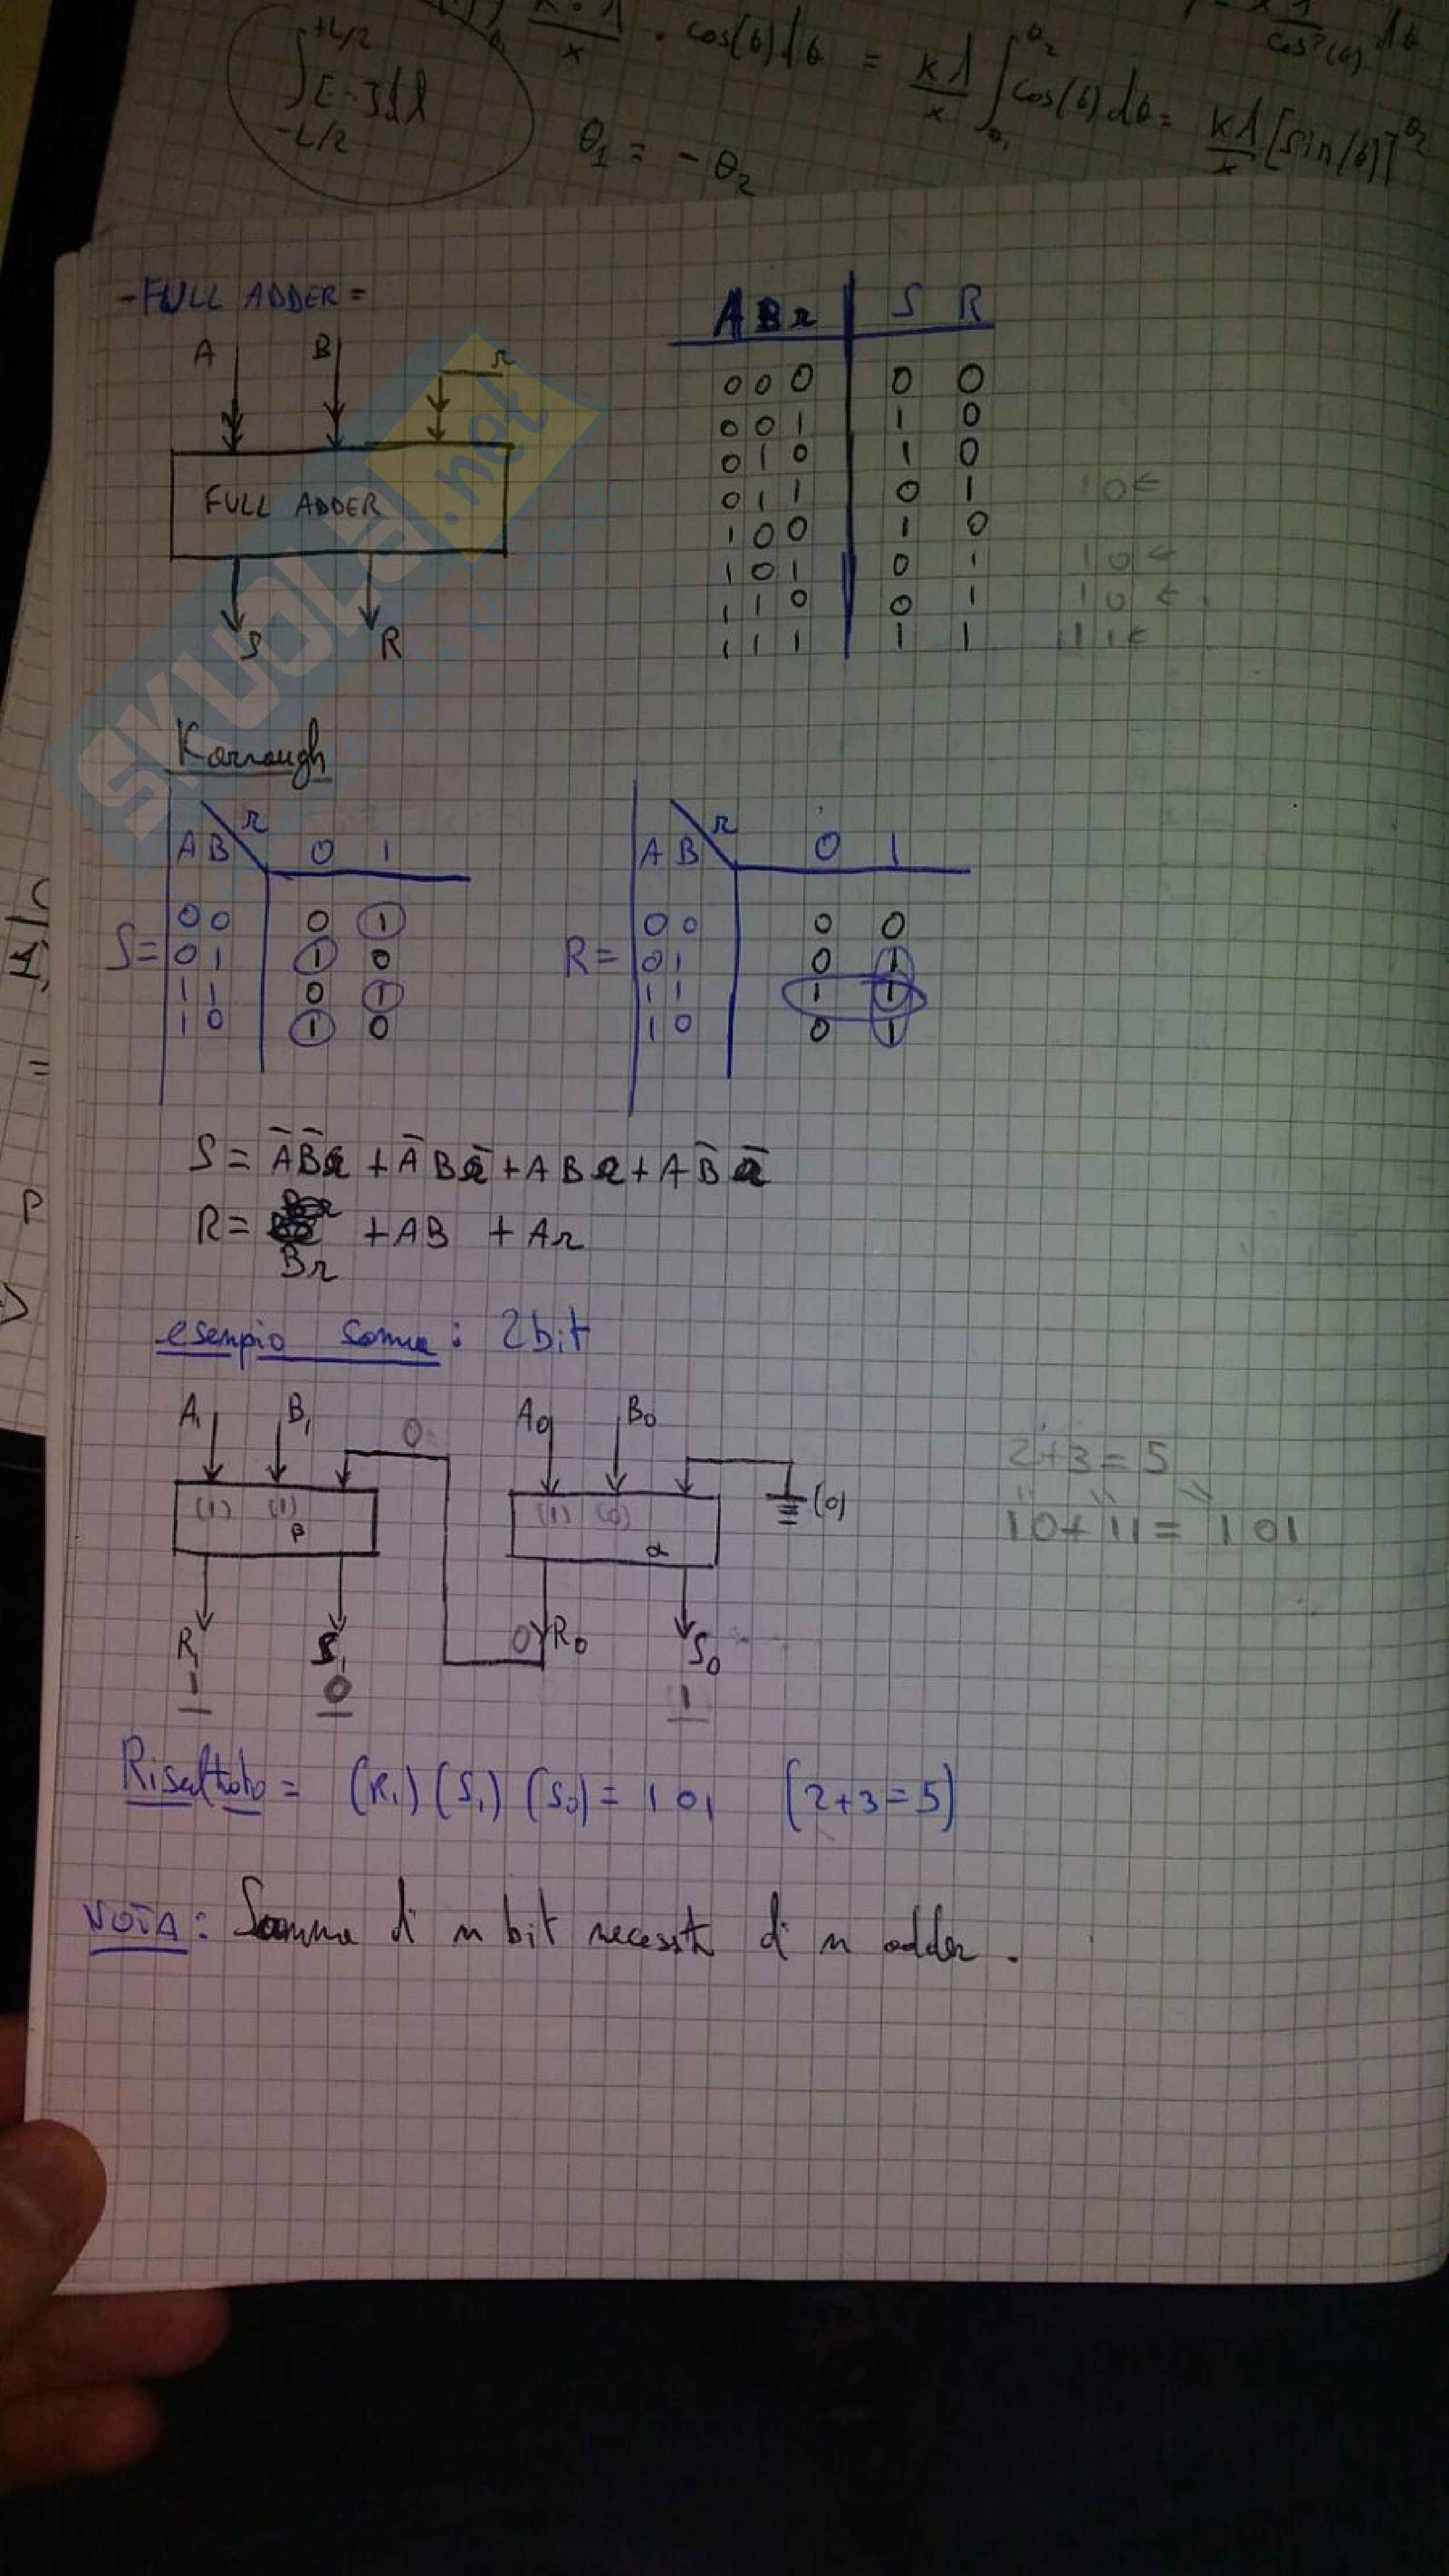 +L/2
∫[-]dl
-L/2
x · cos(θ)dθ = kλ/x ∫ cos(θ)dθ = kλ/x [sin(θ)]θ2
θ1 = -θ2
cos²(θ) dθ
- FULL ADDER =
A B r
FULL ADDER
S R
A B r | S R
0 0 0 | 0 0
0 0 1 | 1 0
0 1 0 | 1 0
0 1 1 | 0 1 10←
1 0 0 | 1 0
1 0 1 | 0 1 10←
1 1 0 | 0 1 10←
1 1 1 | 1 1 11←
SKUOLA.net
Karnaugh
S=
AB\r 0 1
00 0 1
01 1 0
11 0 1
10 1 0
R=
AB\r 0 1
00 0 0
01 0 1
11 1 1
10 0 1
S = A̅B̅r + A̅Br̅ + ABr + AB̅r̅
R = Br + AB + Ar
esempio somma: 2bit
A1 B1 0 A0 B0
(1) (1) β (1) (0) α (0)
R1 S1 0 R0 S0
1 0 1
2+3=5
10+11=101
Risultato = (R1) (S1) (S0) = 101 (2+3=5)
NOTA: Somma di n bit necessita di n adder.